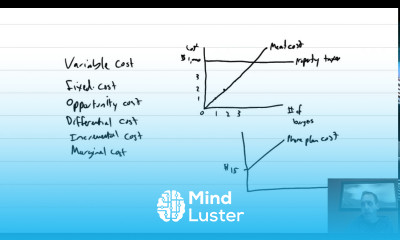 Variable cost
Fixed cost
Opportunity cost
Differential cost
Incremental cost
Marginal cost
Cost
Meal cost
Property taxes
3
2
1
0 1 2 3
# of
Phone plan cost
Mind
Luster